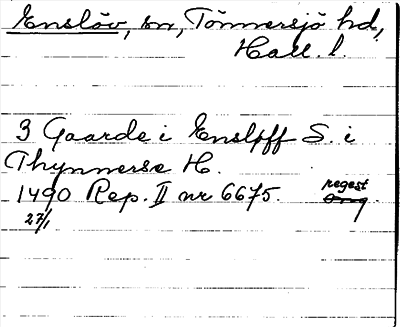 Enslöv, sn, Tönnersjö hd,
Hall. l.
3 Gaarde i Enslpff S. i
Thynnerse H.
1490 Rep. II nr 6675. regest
27/1